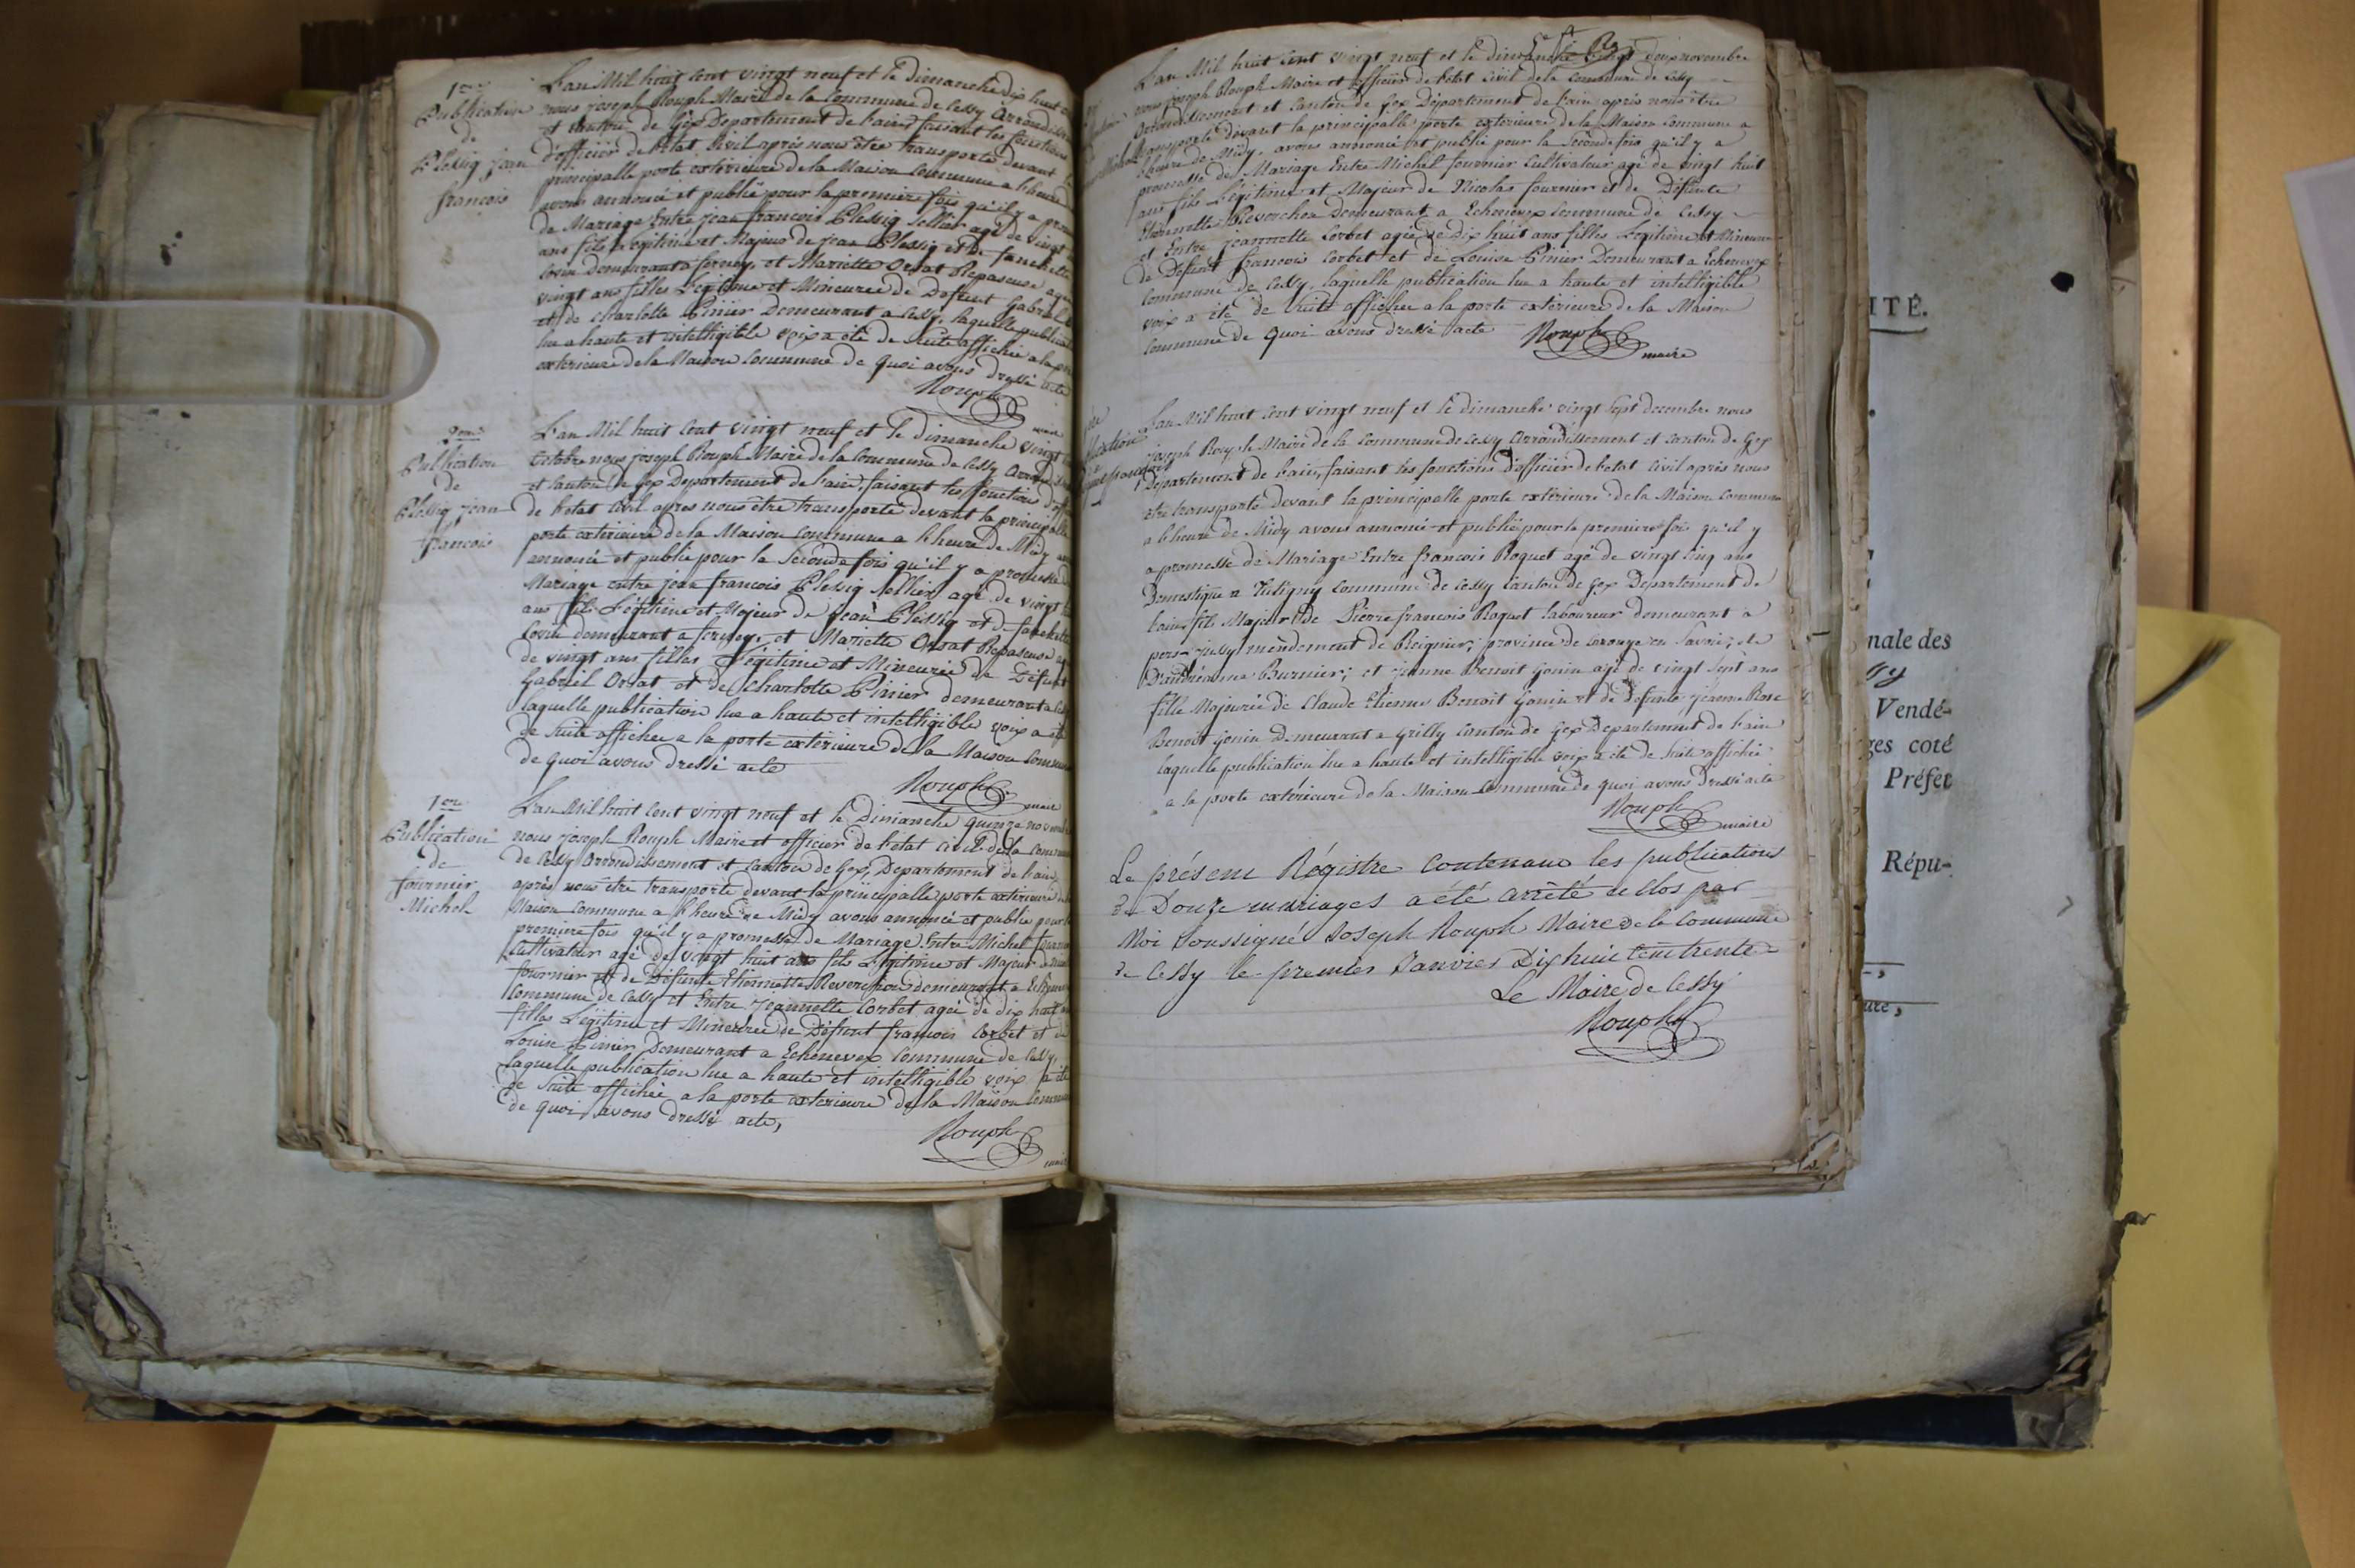 1ere
Publication
de
Plessig jean
françois
L'an Mil huit Cent vingt neuf et le dimanche dix huit
nous joseph Rouph Maire de la Commune de Cessy Arrondisse
et canton de Gex Departement de l'ain, faisant les fonctions
d'officier de l'etat Civil après nous être transporté devant
principalle porte extérieure de la Maison Commune a l'heure
avons annoncé et publié pour la premiere fois qu'il y a prom
de Mariage Entre jean françois Plessig Sellier agé de vingt
ans fils Legitime et Majeur de jean Plessig et de fanchette
demeurant a ferney, et Mariette Orsat Repaseuse agée
vingt ans filles Legitime et Mineurée de Defunt Gabriel
et de Charlotte Pinier Demeurant a Cessy, laquelle publicat
lue a haute et intelligible voix a été de Suite affichée a la po
exterieure de la Maison Commune de quoi avons dressé acte
Rouph
maire
2eme
Publication
de
Plessig jean
françois
L'an Mil huit Cent vingt neuf et le dimanche vingt
octobre nous joseph Rouph Maire de la Commune de Cessy Arrondis
et Canton de Gex Departement de l'ain, faisant les fonctions d'off
de l'etat Civil apres nous être transporté devant la principalle
porte extérieure de la Maison Commune a l'heure de Midy av
annoncé et publié pour la Seconde fois qu'il y a promesse de
Mariage entre jean françois Plessig Sellier agé de vingt
ans fils Légitime et Majeur de jean Plessig et de fanchette
demeurant a ferney, et Mariette Orsat Repaseuse ag
de vingt ans filles Légitime et Mineurée de Défunt
Gabriel Orsat et de Charlotte Pinier demeurant a Cess
laquelle publication lue a haute et intelligible voix a été
de Suite affichée a la porte extérieure de la Maison Commun
de quoi avons dressé acte
Rouph
maire
1ere
Publication
de
fournier
Michel
L'an Mil huit Cent vingt neuf et le Dimanche quinze novemb
nous joseph Rouph Maire et officier de l'etat Civil de la Commun
de Cessy Arrondissement et Canton de Gex, Departement de l'ain,
après nous être transporté devant la principalle porte extérieure de
Maison Commune a l'heure de Midy avons annoncé et publié pour l
premiere fois qu'il y a promesse de Mariage Entre Michel fourn
Cultivateur agé de vingt huit ans fils Légitime et Majeur de
fournier et de Défunte Etiennette Reverchon demeurant a Echenev
Commune de Cessy et Entre Jeannette Corbet agée de dix huit an
filles Légitime et Mineurée de Défunt françois Corbet et de
Louise Pinier Demeurant a Echenevex Commune de Cessy,
laquelle publication lue a haute et intelligible voix a été
de Suite affichée a la porte exterieure de la Maison Commun
de quoi avons dressé acte,
Rouph
maire
L'an Mil huit Cent vingt neuf et le dimanche vingt deux novembre
nous joseph Rouph Maire et officier de l'etat Civil de la Commune de Cessy
Arrondissement et Canton de Gex Département de l'ain après nous être
transporté devant la principalle porte exterieure de la Maison Commune a
l'heure de Midy, avons annoncé et publié pour la Seconde fois qu'il y a
promesse de Mariage Entre Michel fournier Cultivateur agé de vingt huit
ans fils Légitime et Majeur de Nicolas fournier et de Défunte
Etiennette Reverchon Demeurant a Echenevex Commune de Cessy
et Entre jeannette Corbet agée de dix huit ans filles Legitime et Mineurée
de Défunt françois Corbet et de Louise Pinier Demeurant a Echenevex
Commune de Cessy, laquelle publication lue a haute et intelligible
voix a été de Suite affichée a la porte extérieure de la Maison
Commune de quoi avons dressé acte
Rouph
maire
L'an Mil huit Cent vingt neuf et le dimanche vingt Sept decembre nous
joseph Rouph Maire de la Commune de Cessy Arrondissement et Canton de Gex
Departement de l'ain, faisant les fonctions d'officier de l'etat Civil après nous
etre transporté devant la principalle porte extérieure de la Maison Commune
a l'heure de Midy avons annoncé et publié pour la premiere fois qu'il y
a promesse de Mariage Entre françois Roguet agé de vingt cinq ans
Domestique a Tutigny Commune de Cessy Canton de Gex Departement de
l'ain, fils Majeur de Pierre françois Roguet laboureur demeurant a
pers-jussy mendement de Reignier, province de Carouge en Savoie, et
D'andréanne Burnier; et jeanne Benoit Gonin agé de vingt Sept ans
fille Majeurée de Claude Etienne Benoit Gonin et de defunte jeanne Rose
Benoit Gonin Demeurant a Grilly Canton de Gex Departement de l'ain
laquelle publication lue a haute et intelligible voix a été de Suite affichée
a la porte extérieure de la Maison Commune de quoi avons dressé acte
Rouph
maire
Le présent Régistre contenant les publications
de Douze mariages a été arrêté et clos par
Moi Soussigné Joseph Rouph Maire de la Commune
de Cessy le premier Janvier Dix huit cent trente
Le Maire de Cessy
Rouph
ITÉ.
nale des
Vendé-
ges coté
Préfet
Répu-